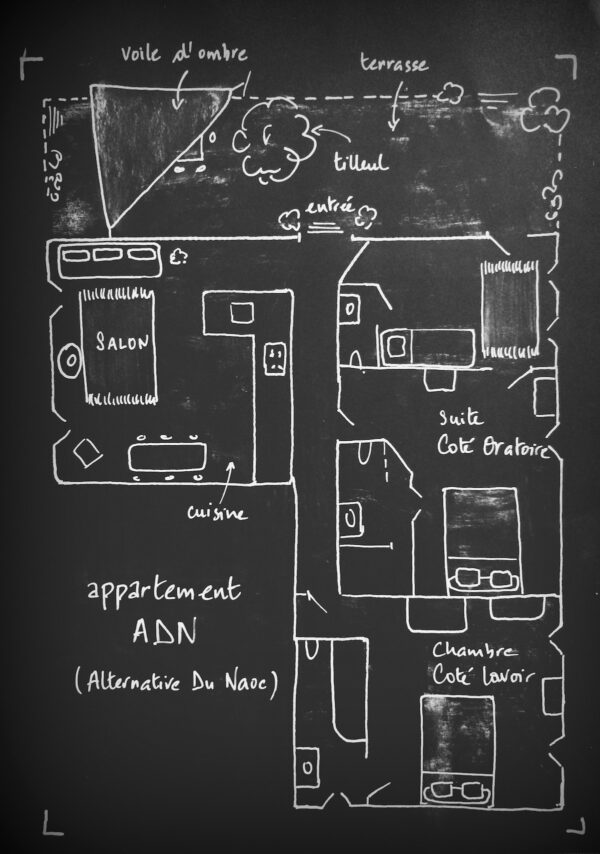 Voile d'ombre
terrasse
tilleul
entrée
SALON
Suite
Coté Oratoire
cuisine
appartement
ADN
(Alternative Du Naoc)
Chambre
Coté Lavoir